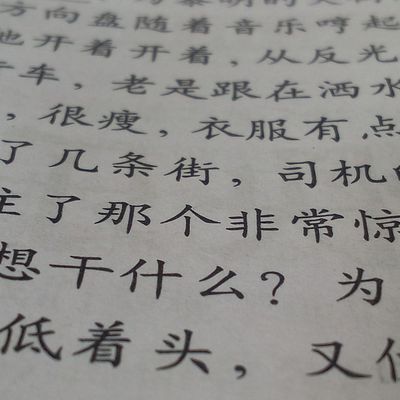 方向盘随着音乐哼起
他开着开着，从反光
车，老是跟在洒水
，很瘦，衣服有点
了几条街，司机
住了那个非常惊
想干什么？为
低着头，又